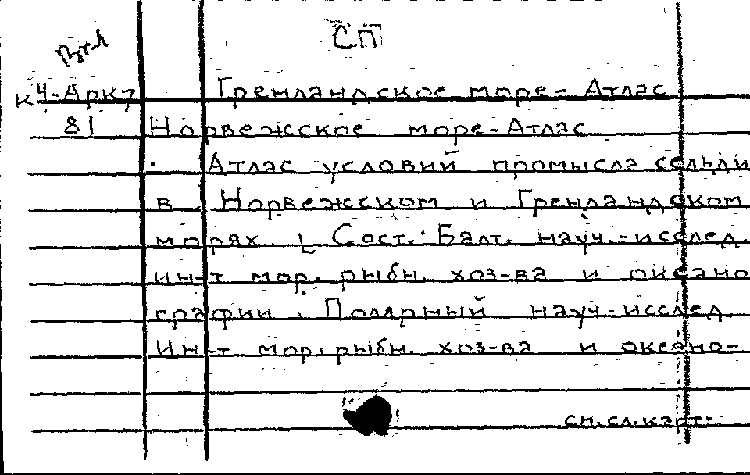 СП
К4-Арк7 Гренландское море - Атлас
81 Норвежское море - Атлас
Атлас условий промысла сельди
в Норвежском и Гренландском
морях [ Сост.: Балт. науч.-исслед.
ин-т мор. рыбн. хоз-ва и океано
графии. Полярный науч-исслед.
Ин-т мор. рыбн. хоз-ва и океано-
см. сл. карт.